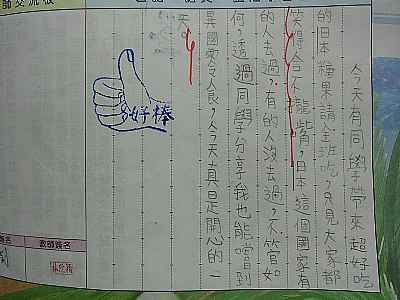 今天有同學帶來超好吃
的日本糖果請全班吃，只見大家都
笑得合不攏嘴，日本這個國家有
的人去過，有的人沒去過，不管如
何，透過同學分享我也能嚐到
異國零食，今天真是開心的一
天。
好棒
教師簽名